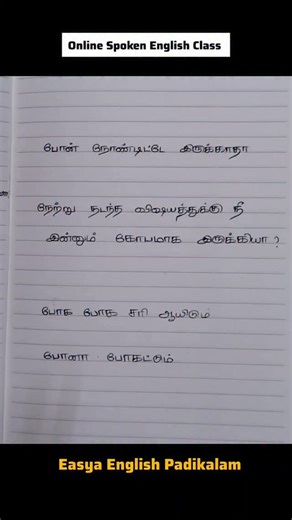 Online Spoken English Class
போன் நோண்டிட்டே இருக்காதா
நேற்று நடந்த விஷயத்துக்கு நீ
இன்னும் கோபமாக இருக்கியா ?
போக போக சரி ஆயிடும்
போனா போகட்டும்
Easya English Padikalam